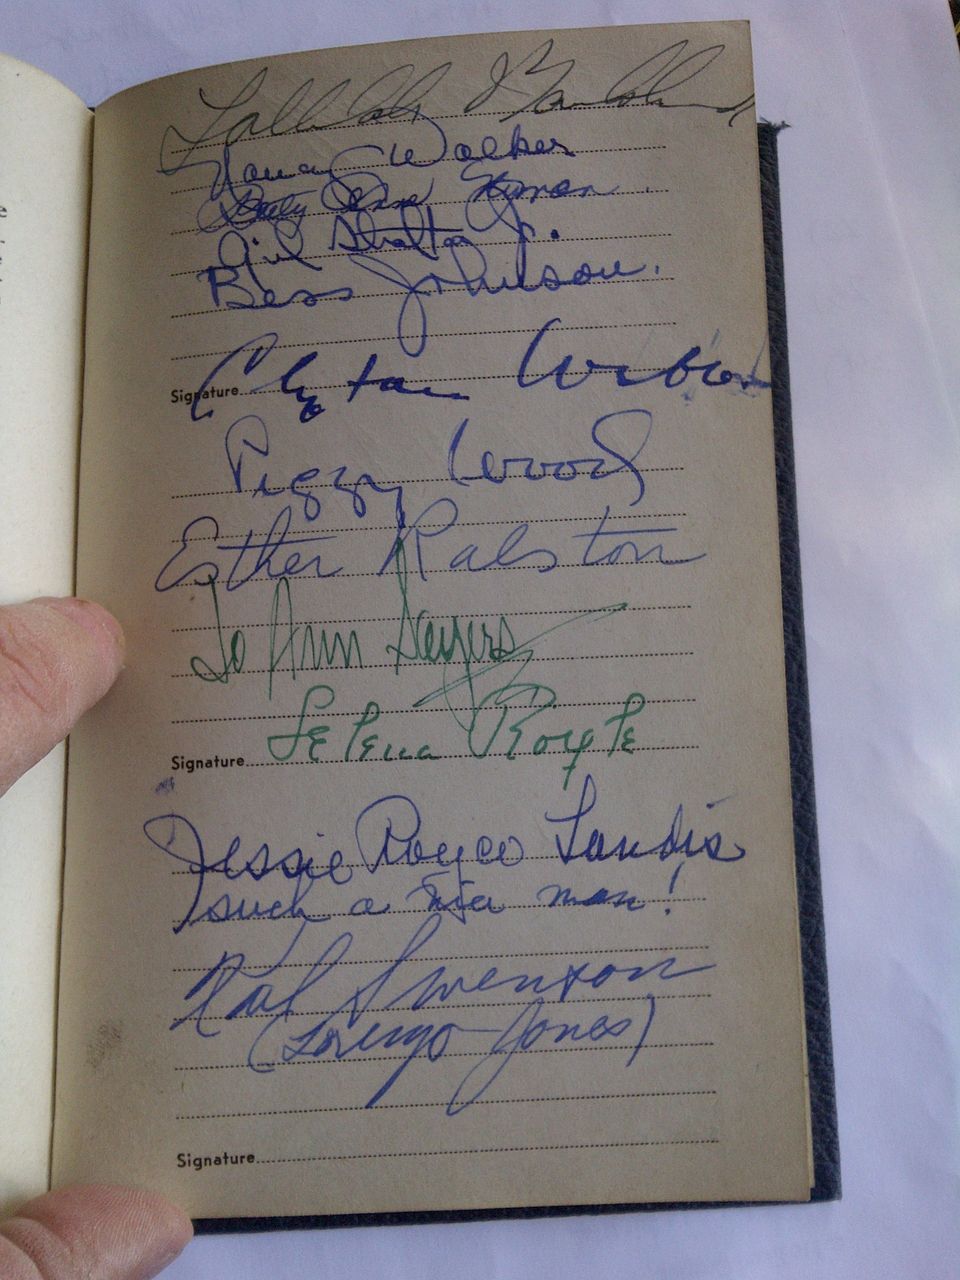 Tallulah Bankhead
Nancy Walker
Betty Anne Nyman.
Gil Stratton Jr.
Bess Johnson.
Signature
Peggy Wood
Esther Ralston
Jo Ann Sayers
Selena Royle
Signature
Jessie Royce Landis
such a nice man!
Karl Swenson
(Lorenzo Jones)
Signature